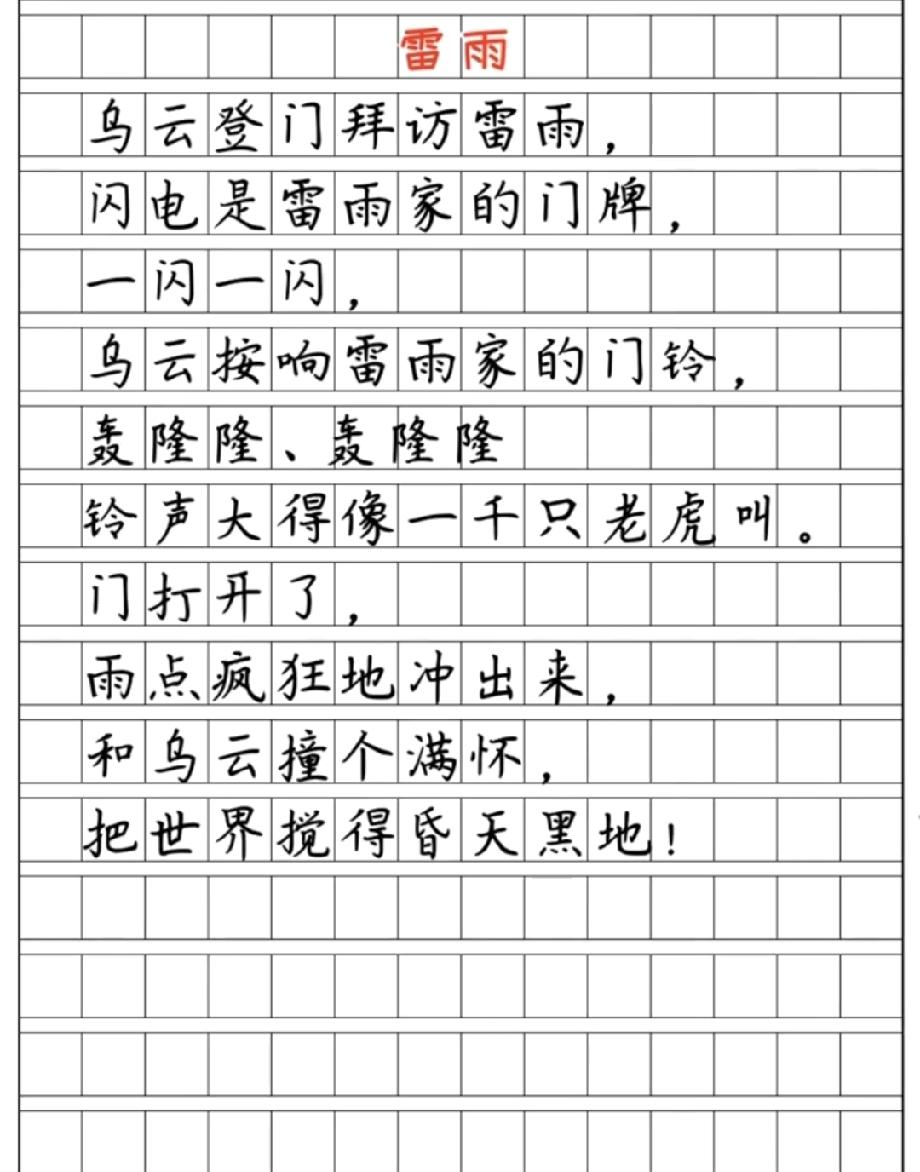 雷雨
乌云登门拜访雷雨，
闪电是雷雨家的门牌，
一闪一闪，
乌云按响雷雨家的门铃，
轰隆隆、轰隆隆
铃声大得像一千只老虎叫。
门打开了，
雨点疯狂地冲出来，
和乌云撞个满怀，
把世界搅得昏天黑地！